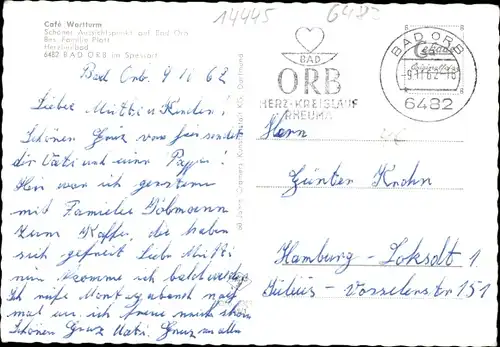 Café Wartturm
Schöner Aussichtspunkt auf Bad Orb
Bes. Familie Platt
Herzheilbad
6482 BAD ORB im Spessart
14445
6482
BAD
ORB
HERZ-KREISLAUF
RHEUMA
BAD ORB
-9.11.62-18
6482
Bad Orb. 9 11 62
Liebe Mutti u Kinder!
Schönen Gruz von hier sendet
dir Vati und euer Pappi!
Hier war ich gestern
mit Familie
zum Kaffe, die haben
sich gefreit. Liebe Mutti
nun komme ich bald wieder
Ich rufe Montag abend noch
mal an. ich freue mich schon
Schönen Gruz Vati. Gruz an alle
Herrn
Günter Krohn
Hamburg - Loksdt 1
Julius - Vosselerstr 151